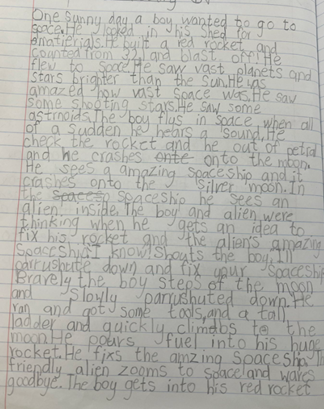 One sunny day a boy wanted to go to
space.He looked in his shed for
amaterials.He built a red rocket and
counted from 33 and blast off! He
flew to space.He saw vast planets and
stars brighter than the sun.He was
amazed how vast space was.He saw
some shooting stars.He saw some
astroinds.The boy flus in space when all
of a sudden he hears a sound.He
check the rocket and he out of petrol
and he crashes onto the moon.
He sees a amazing spaceship and it
crashes onto the silver moon.In
the spaceship he sees an
alien inside.The boy and alien were
thinking when he gets an idea to
fix his rocket and the alien's amazing
spaceship.I know! shouts the boy.I'll
parrushute down and fix your spaceship
Bravely the boy steps of the moon
and slowly parrushuted down.He
ran and got some tools,and a tall
ladder and quickly climbs to the
moon.He pours fuel into his huge
rocket.He fixs the amzing spaceship.
friendly alien zooms to space and waves
goodbye.The boy gets into his red rocket